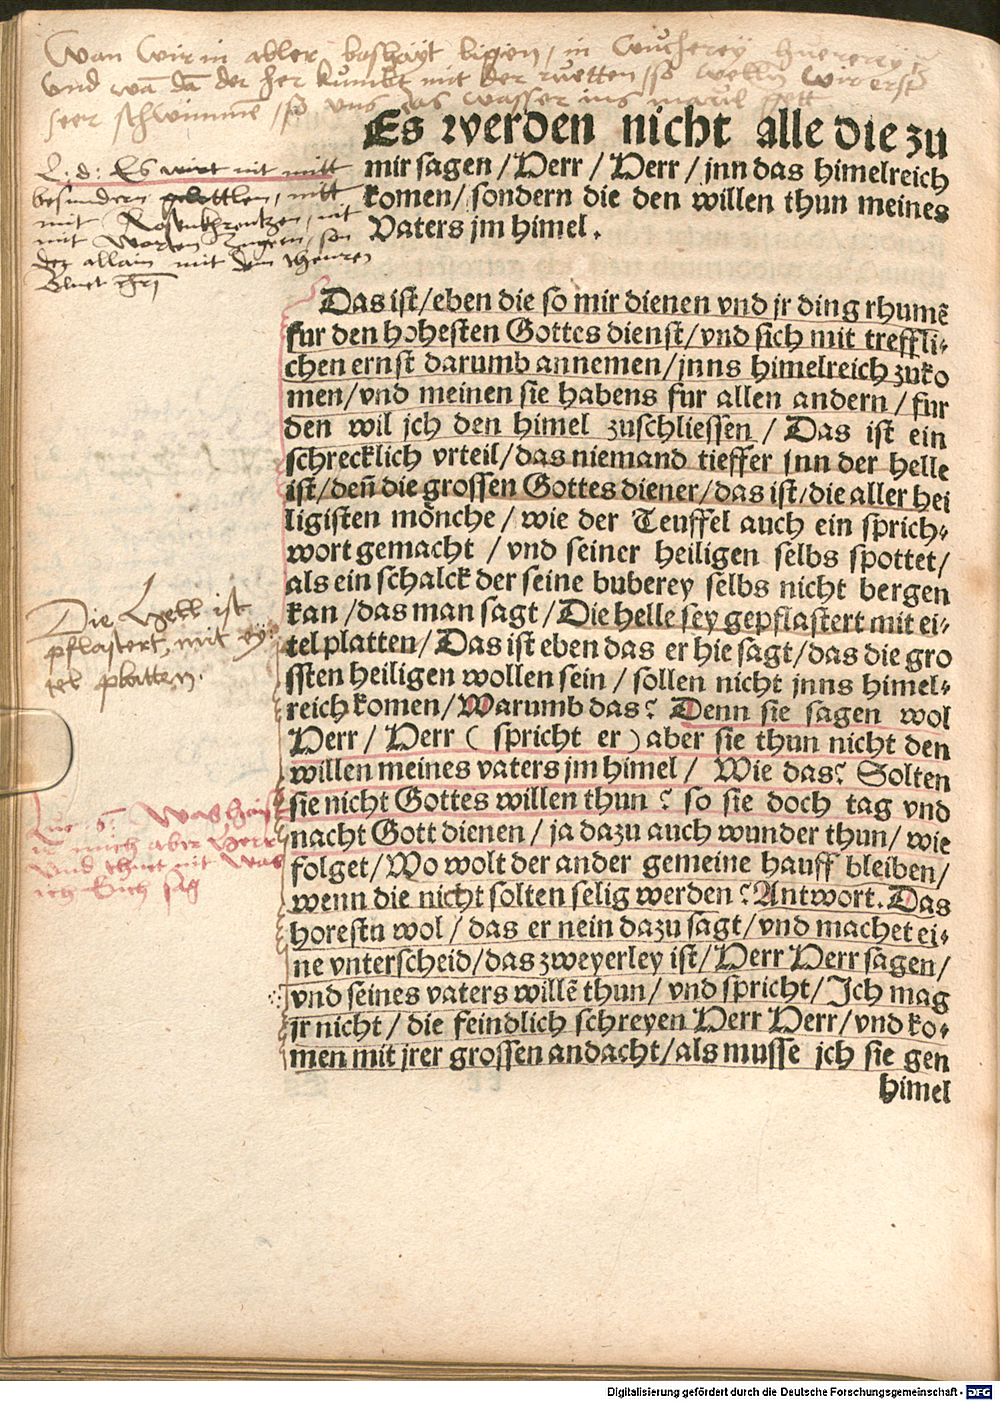 Wan wir in aller boshayt ligen, in wucherey huererey
vnd wā dā der her kumbt mit der ruetten, so wellen wir erst
seer schwimmē, so vns das wasser ins maul gett
Es werden nicht alle die zu
mir sagen / Herr / Herr / jnn das himelreich
komen / sondern die den willen thun meines
Vaters jm himel.
L: d: Es wirt nit mitt
besundern gebettlen, nitt
mit Rosenkhrentzen, nit
mit worten, son
der allain mit dem theuren
Bluet
Das ist / eben die so mir dienen vnd jr ding rhumē
fur den hohesten Gottes dienst / vnd sich mit treffli⸗
chen ernst darumb annemen / jnns himelreich zuko
men / vnd meinen sie habens fur allen andern / fur
den wil jch den himel zuschliessen / Das ist ein
schrecklich vrteil / das niemand tieffer jnn der helle
ist / deñ die grossen Gottes diener / das ist / die aller hei
ligisten mönche / wie der Teuffel auch ein sprich⸗
wort gemacht / vnd seiner heiligen selbs spottet /
als ein schalck der seine buberey selbs nicht bergen
kan / das man sagt / Die helle sey gepflastert mit ei⸗
tel platten / Das ist eben das er hie sagt / das die gro
ssten heiligen wollen sein / sollen nicht jnns himel⸗
reich komen / Warumb das? Denn sie sagen wol
Herr / Herr ( spricht er ) aber sie thun nicht den
willen meines vaters jm himel / Wie das? Solten
sie nicht Gottes willen thun ? so sie doch tag vnd
nacht Gott dienen / ja dazu auch wunder thun / wie
folget / Wo wolt der ander gemeine hauff bleiben /
wenn die nicht solten selig werden ? Antwort. Das
horestu wol / das er nein dazu sagt / vnd machet ei⸗
ne vnterscheid / das zweyerley ist / Herr Herr sagen /
vnd seines vaters willē thun / vnd spricht / Ich mag
jr nicht / die feindlich schreyen Herr Herr / vnd ko⸗
men mit jrer grossen andacht / als musse jch sie gen
himel
Die Hell ist
pflastert mit ey
tel platten.
Luc. 6: Was hayst
ir mich aber Herr
vnd thuet nit was
ich Euch sag
Digitalisierung gefördert durch die Deutsche Forschungsgemeinschaft - DFG